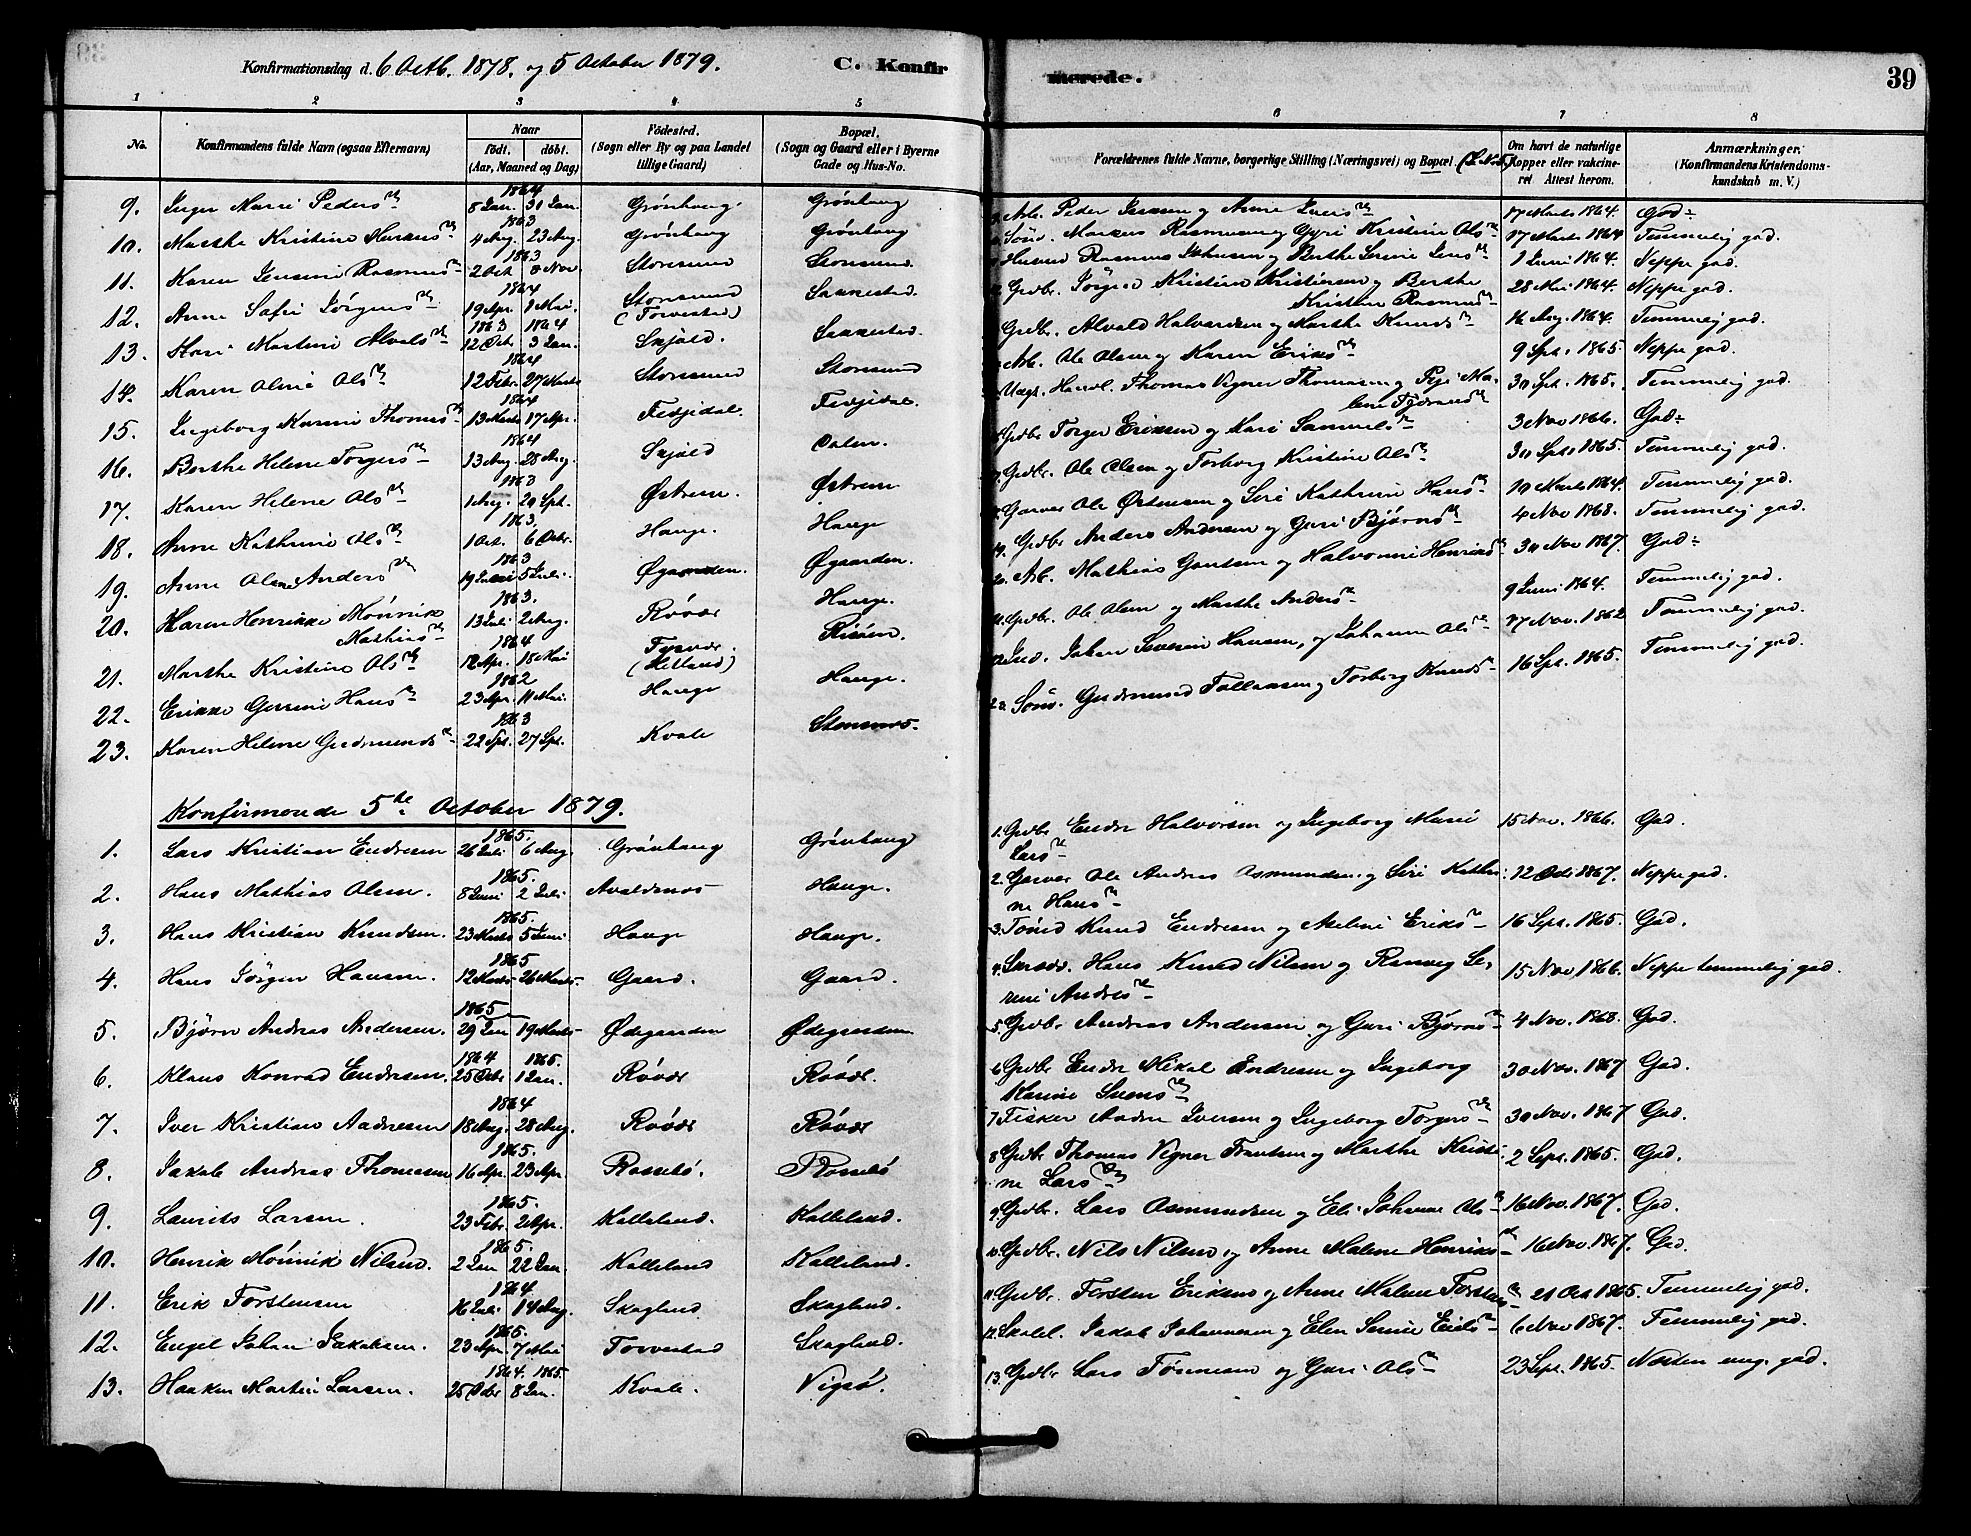 Konfirmationsdag d. 6 Octb. 1878. og 5 October 1879. C. Konfirmerede. 39
1 2 3 4 5 6 7 8
No. Konfirmandens fulde Navn (ogsaa Efternavn) Naar födt. döbt. (Aar, Maaned og Dag) Födested. (Sogn eller By og paa Landet tillige Gaard) Bopæl. (Sogn og Gaard eller i Byerne Gade og Hus-No. Forældrenes fulde Navne, borgerlige Stilling (Næringsvei) og Bopæl. Om havt de naturlige Kopper eller vakcineret Attest herom. Anmærkninger. (Konfirmandens Kristendomskundskab m. V.)
9. Inger Marie Pedersd. 1864 8 Jan. 31 Jan. Grönhaug. Grönhaug Arb. Peder Jensen og Anne Larsd. 17 Marts 1864. God
10. Marthe Kristine Markusd. 1863 4 Aug. 23 Aug. Grönhaug Grönhaug Markus Rasmussen og Gyri Kristine Olsd. 17 Marts 1864 Temmelig god.
11. Karen Jensine Rasmusd. 1863 2 Oct. 8 Nov Storesund Storesund. Husmd Rasmus Johnsen og Berthe Serine Jensd. 1 Juni 1864. Neppe god.
12. Anne Sofie Jörgensd. 1864 19 Apr. 1 Mai. Storesund (Torvestad) Grdbr. Jörgen Kristian Kristiansen og Berthe Kristine Rasmusd. 28 Mai 1864. Neppe god.
13. Kari Martine Alvalsd. 1863 1864 12 Octbr. 3 Jan. Skjold. Grdbr. Alvald Halvardsen og Marthe Knudsd. 16 Aug. 1864. Temmelig god.
14. Karen Oline Olsd. 1864 12 Febr. 27 Marts Storesund Storesund Arb. Ole Olsen og Karen Eriksd. 9 Spt. 1865. Neppe god.
15. Ingeborg Karine Thomasd. 1864 13 Marts 17 Apr. Feojidal. Feojidal. Handl. Thomas Vigner Thomassen og 30 Spt. 1865. Temmelig god.
16. Berthe Helene Torgersd. 1864 13 Aug. 28 Aug. Skjold Dalen. Grdbr Torger Eriksen og Kari Samuelsd. 3 Nov 1866. God
17. Karen Helene Olsd. 1863 1 Aug. 20 Spt. Østrem. Østrem Grdbr. Ole Olsen og Torborg Kristine Olsd. 30 Spt. 1865. Temmelig god.
18. Anne Kathrine Olsd. 1863. 1 Oct. 6 Octbr. Hauge. Hauge Garver Ole Østensen og Siri Kathrine Hansd. 10 Marts 1864. Temmelig god.
19. Anne Oline Andersd. 1863 19 Juni 5 Juli. Øgaarden. Øgaarden. 19. Grdbr Anders Andersen og Guri Björnsd. 4 Nov 1868. Temmelig god.
20. Karen Henrikke Mönnik Mathiasd. 1863. 13 Juli 2 Aug. Rövær Hauge. 20. Arb. Mathias Gautsen og Halvorine Henriksd. 30 Nov 1867. God
21. Marthe Kristine Olsd. 1864 12 Apr. 18 Mai Tysvær (Hetland) Grdbr. Ole Olsen og Marthe Andersd. 9 Juni 1864. Temmelig god.
22. Erikke Gurine Hansd. 1862 23 Apr. 11 Mai. Hauge Hauge. Johan Severin Hansen, og Johanne Olsd. 17 Nov. 1862 Temmelig god.
23. Karen Helene Gudmundsd. 1863 22 Spt. 27 Spt. Kvale 23. Gudmund Tollaksen og Torborg Knudsd. 16 Spt. 1865. Temmelig god.
Konfirmerede 5te October 1879.
1. Lars Kristian Endresen 1865. 26 Juli 6 Aug. Grönhaug Grönhaug 1. Grdbr Endre Halvorsen og Ingeborg Marie Larsd. 15 Nov. 1866. God.
2. Hans Mathias Olsen. 1865. 8 Juni 2 Juli Avaldsnes Hauge. 2. Garver Ole Andreas Osmundsen og Siri Kathrine Hansd. 12 Oct 1867. Neppe god.
3. Hans Kristian Knudsen. 1865. 23 Marts 5 Juni Hauge Hauge. 3. Knud Endresen og Meline Eriksd. 16 Sept. 1865. God.
4. Hans Jörgen Hansen. 1865 12 Marts 26 Marts Gaard. Gaard. 4. Hans Knud Nilsen og Ranveig Serine Andersd. 15 Nov 1866. Neppe temmelig god.
5. Björn Andreas Andersen. 1865 29 Jan 19 Marts Ødegaarden Ødegaarden 5. Grdbr Andreas Andersen og Guri Björnsd. 4 Nov. 1868. God.
6. Klaus Konrad Endresen. 1864 1865. 25 Octbr 1 Jan. Rövær Rövær. 6 Grdbr Endre Mikal Endresen og Ingeborg Karine Svensd. 30 Nov. 1867 God.
7. Iver Kristian Aadnesen 1864 18 Aug. 28 Aug. Rövær Rövær 7 Fisker Aadne Iversen og Ingeborg Torgersd. 30 Nov. 1867 God.
8. Jakob Andreas Thomesen 1865. 16 Apr. 23 Apr. Rossebö. Rossebö 8 Grdbr Thomas Vigner og Marthe Kristine Larsd. 2 Sept. 1865. God.
9. Laurits Larsen. 1865. 23 Febr. 2 Apr. Kalleland. Kalleland. 9. Grdbr. Lars Osmundsen og Eli Johanne Olsd. 16 Nov. 1867. God.
10. Henrik Mönnik Nilsen. 1865. 2 Jan 22 Jan. Kalleland Kalleland. 10. Grdbr. Nils Nilsen og Anne Malene Henriksd. 16 Nov. 1867. God.
11. Erik Torstensen 1864 16 Juli 14 Aug. Skagland Skagland. 11. Grdbr. Torsten Eriksen og Anne Malene Torstensd. 21 Oct 1865. Temmelig god.
12. Engel Johan Jakobsen. 1865. 23 Apr. 7 Mai Torvestad Skagland. 12. Jakob Johannesen og Elen Serine 6 Nov 1867. Temmelig god.
13. Haaken Martin Larsen. 1864. 1865. 25 Octbr 8 Jan. Kvale. Vigsö. 13. Grdbr Lars Tönnesen og Guri Olsd. 23 Sept. 1865. Næsten mg. god.